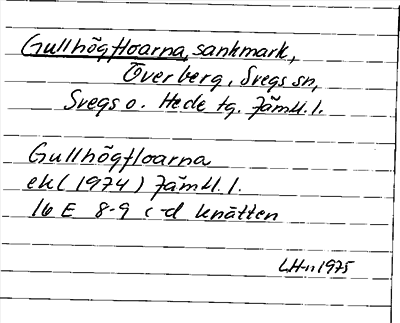 Gullhögfloarna, sankmark,
Överberg, Svegs sn,
Svegs o. Hede tg. Jämtl. l.
Gullhögfloarna
ek (1974) Jämtl. l.
16 E 8-9 c-d Knätten
LHn 1975